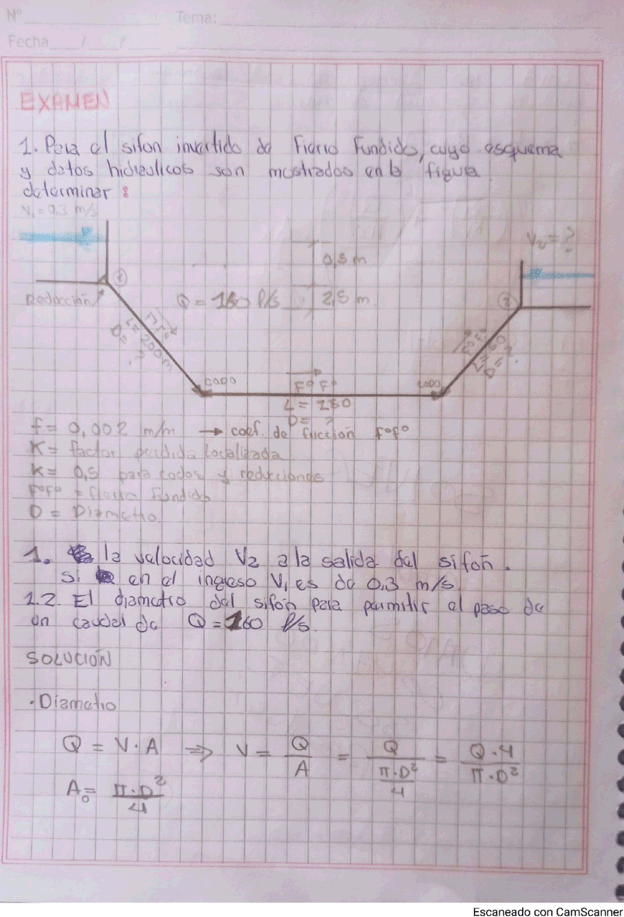 Nº Tema:
Fecha / /
EXAMEN
1. Para el sifon invertido de Fierro Fundido, cuyo esquema
y datos hidraulicos son mostrados en la figura
determinar :
V₁ = 0.3 m/s
V₂ = ?
0,5 m
Reducción
1
Q = 160 l/s
2,5 m
2
FºFº
L = 200 m
D = ?
codo
FºFº
L = 250
D = ?
codo
FºFº
f = 0,002 m/m → coef. de fricción FºFº
K = factor perdida localizada
k = 0,5 para codos y reducciones
FºFº = fierro Fundido
D = Diametro
1. la velocidad V₂ a la salida del sifon.
si en el ingreso V₁ es de 0.3 m/s
1.2. El diametro del sifón para permitir el paso de
un caudal de Q = 160 l/s.
SOLUCIÓN
· Diametro
Q = V · A ⇒ V = Q/A = Q/(π·D²/4) = Q·4/π·D²
A₀ = π·D²/4
Escaneado con CamScanner